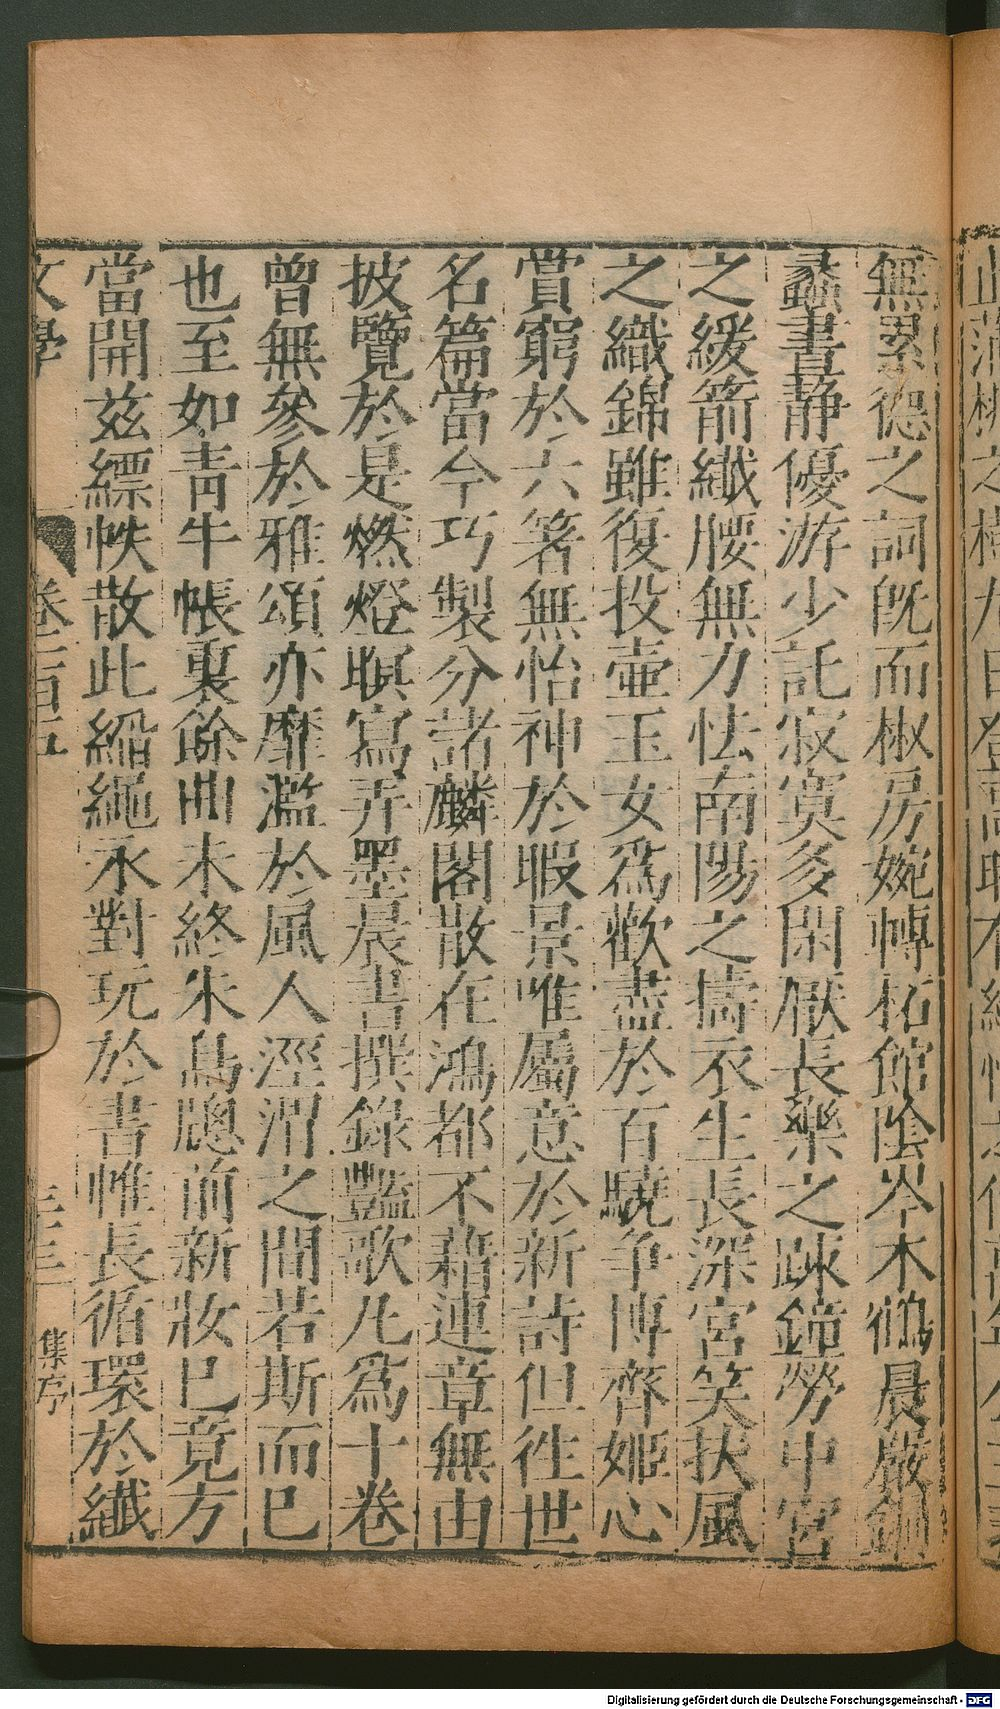 無累德之詞旣而椒房婉轉柘館陰岑木鶴晨嚴銅
蠡晝静優游少託寂寞多閑厭長樂之疎鐘勞中宫
之緩箭纖腰無力怯南陽之擣衣生長深宫笑扶風
之織錦雖復投壷玉女爲歡盡於百驍争博齊姬心
賞窮於六箸無怡神於暇景唯屬意於新詩但徃世
名篇當今巧製分諸麟閣散在鴻都不藉連章無由
披覽於是燃燈暝寫弄墨晨書撰錄豔歌凡爲十卷
曾無參於雅頌亦靡濫於風人涇渭之間若斯而已
也至如青牛帳裏餘曲未終朱鳥牕前新妝已竟方
當開兹縹帙散此縚繩永對玩於書帷長循環於纎
文學 卷二百五 集序
Digitalisierung gefördert durch die Deutsche Forschungsgemeinschaft - DFG